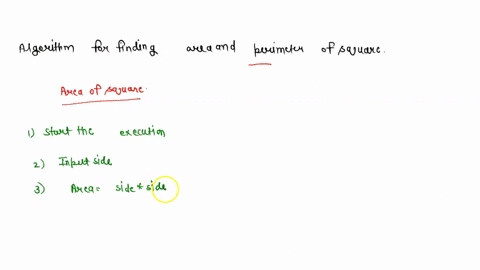 Algorithm for finding area and perimeter of square.
Area of square.
1) start the execution
2) Input side
3) Area = side * side